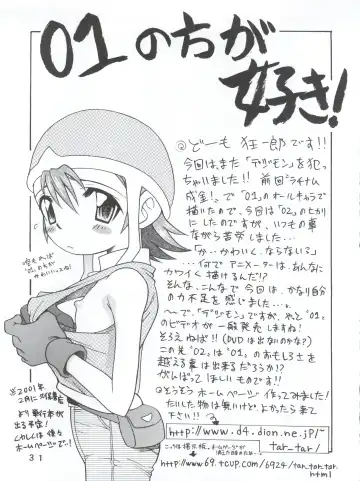 01のちが
好き!
◎どーも 狂一郎です!!
今回は、また「デジモン」を犯っ
ちゃいました!! 前回「プラチナム
成金!。」で「01」のオールキャラで
描いたので、今回は「02」のヒカリ
にしたのですが、いつもの事
ながら苦労しました…
「か…かわいく、ならない…」
…何でアニメーターは、あんなに
カワイく描けるんだ!?
そんな、こんなで今回は、かなり自分
の力不足を感じました…。
〜で、「デジモン」ですが、やと「01」
のビデオが一般発売しますね!
そろえねば!!(DVDは出ないのかな?)
この先「02」は「01」のおもしろさを
越える事は出来るだろうか!?
がんばってほしいものです!!
◎そうそうホームページ作ってみました!
たいした物は無いけど、よかったら来て
下さい!!
http://www.d4.dion.ne.jp/~
tar_tar/
http://www69.tcup.com/6924/tar_tar_tar.
html
※2001年
2月に
より単行本が
出る予定!
くわしくは後々
ホームページで…!
31